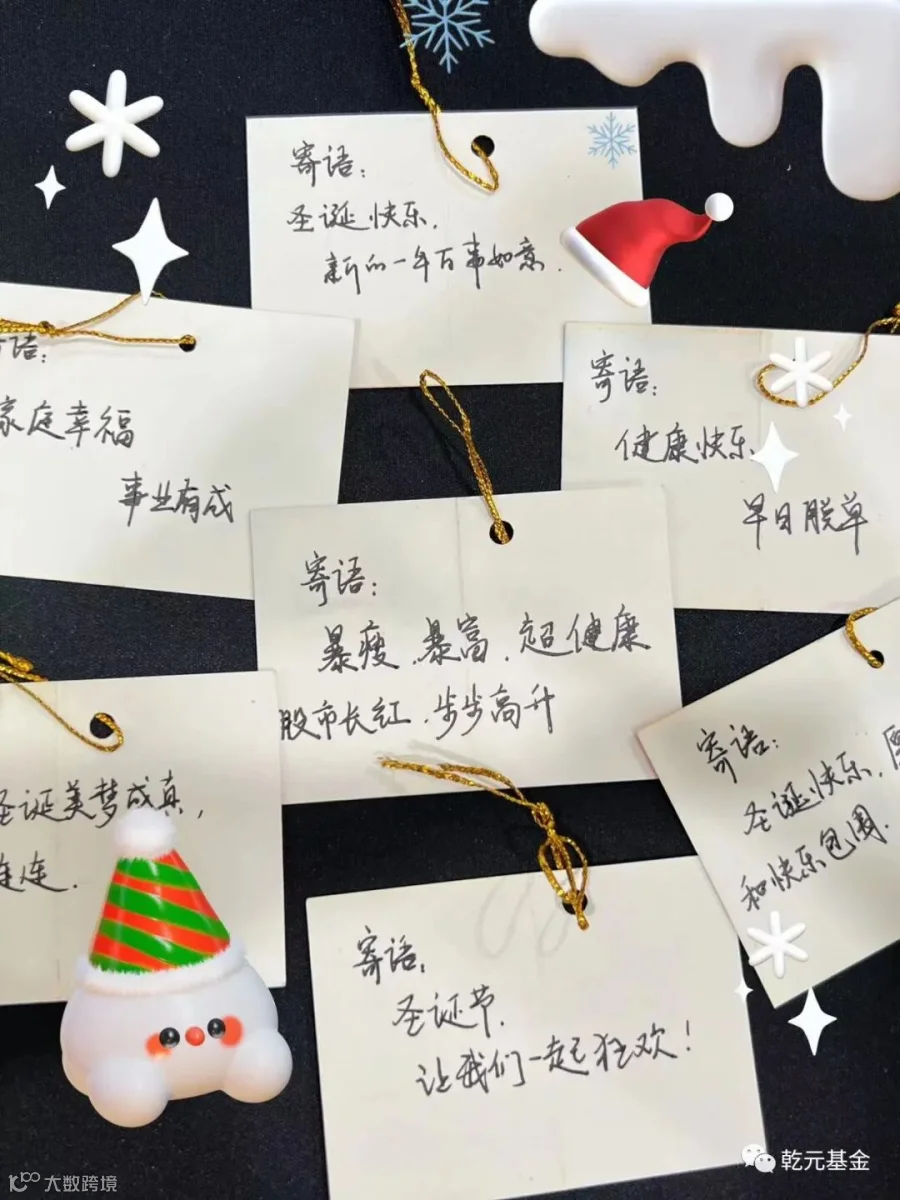 寄语：
圣诞快乐.
新的一年百事如意.
语：
家庭幸福
事业有成
寄语：
健康快乐
早日脱单
寄语：
暴瘦.暴富.超健康
股市长红.步步高升
圣诞美梦成真，
连连.
寄语：
圣诞快乐，愿
和快乐包围.
寄语，
圣诞节.
让我们一起狂欢！
乾元基金
大数跨境